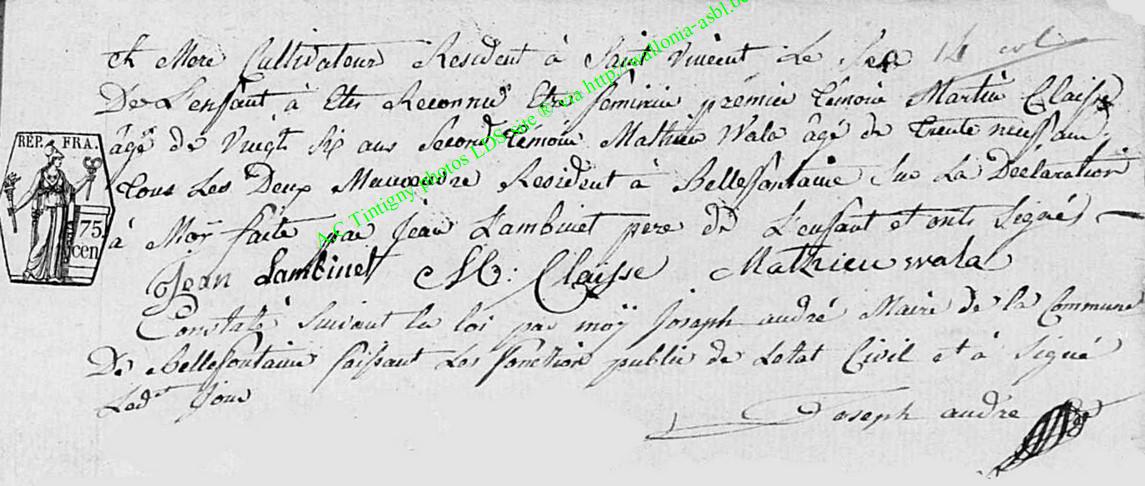 & Mere Cultivateur Resident à Saint Vincent Le Sexe
De L'enfant à Eté Reconnu Etre feminin premier témoin Martin Claisse
âgé de Vingt Six ans Second témoin Mathieu Wala âgé de trente neuf ans
tous Les Deux Resident à Bellefontaine Sur La Déclaration
à Moÿ faite par Jean Lambinet pere de L'enfant et onts Signés
Jean Lambinet M: Claisse Mathieu wala
Constaté Suivant la loi par moÿ Joseph andré Maire de la Commune
De Bellefontaine faissant Les fonction public de Letat Civil et à Signé
Ledt Jour
Joseph andré
RÉP. FRA.
75.
cen
A.C Tintigny, photos LDS, site ® via http://wallonia-asbl.be